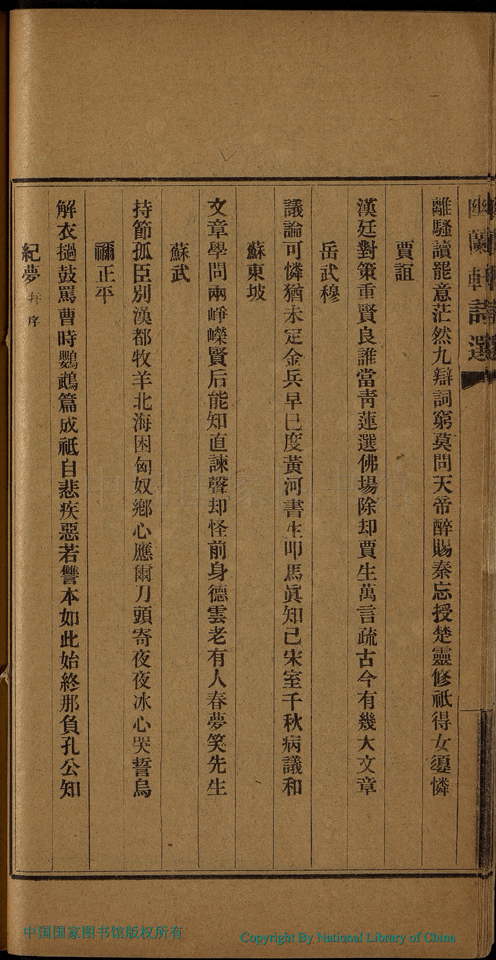 幽蘭軒詩選
離騷讀罷意茫然九辯詞窮莫問天帝醉賜秦忘授楚靈修祇得女嬃憐
賈誼
漢廷對策重賢良誰當靑蓮選佛場除却賈生萬言疏古今有幾大文章
岳武穆
議論可憐猶未定金兵早已度黃河書生叩馬眞知己宋室千秋病議和
蘇東坡
文章學問兩崢嶸賢后能知直諫聲却怪前身德雲老有人春夢笑先生
蘇武
持節孤臣別漢都牧羊北海困匈奴鄕心應爾刀頭寄夜夜冰心哭誓烏
禰正平
解衣撾鼓罵曹時鸚鵡篇成祇自悲疾惡若讐本如此始終那負孔公知
紀夢并序
中国国家图书馆版权所有
Copyright By National Library of China